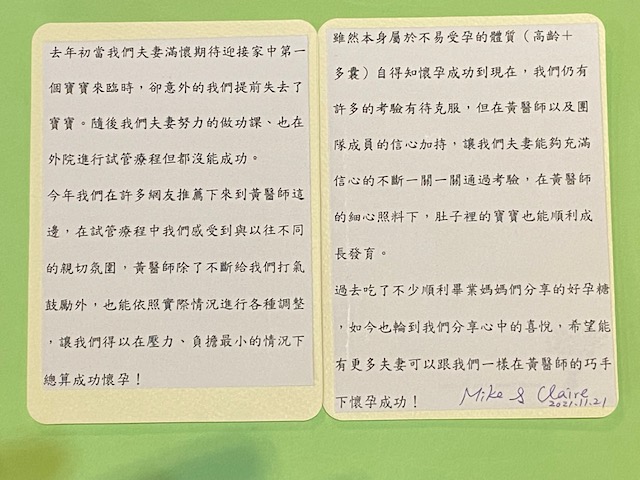 去年初當我們夫妻滿懷期待迎接家中第一
個寶寶來臨時，卻意外的我們提前失去了
寶寶。隨後我們夫妻努力的做功課、也在
外院進行試管療程但都沒能成功。
今年我們在許多網友推薦下來到黃醫師這
邊，在試管療程中我們感受到與以往不同
的親切氛圍，黃醫師除了不斷給我們打氣
鼓勵外，也能依照實際情況進行各種調整
，讓我們得以在壓力、負擔最小的情況下
總算成功懷孕！
雖然本身屬於不易受孕的體質（高齡＋
多囊）自得知懷孕成功到現在，我們仍有
許多的考驗有待克服，但在黃醫師以及團
隊成員的信心加持，讓我們夫妻能夠充滿
信心的不斷一關一關通過考驗，在黃醫師
的細心照料下，肚子裡的寶寶也能順利成
長發育。
過去吃了不少順利畢業媽媽們分享的好孕糖
，如今也輪到我們分享心中的喜悅，希望能
有更多夫妻可以跟我們一樣在黃醫師的巧手
下懷孕成功！
Mike & Claire
2021.11.21